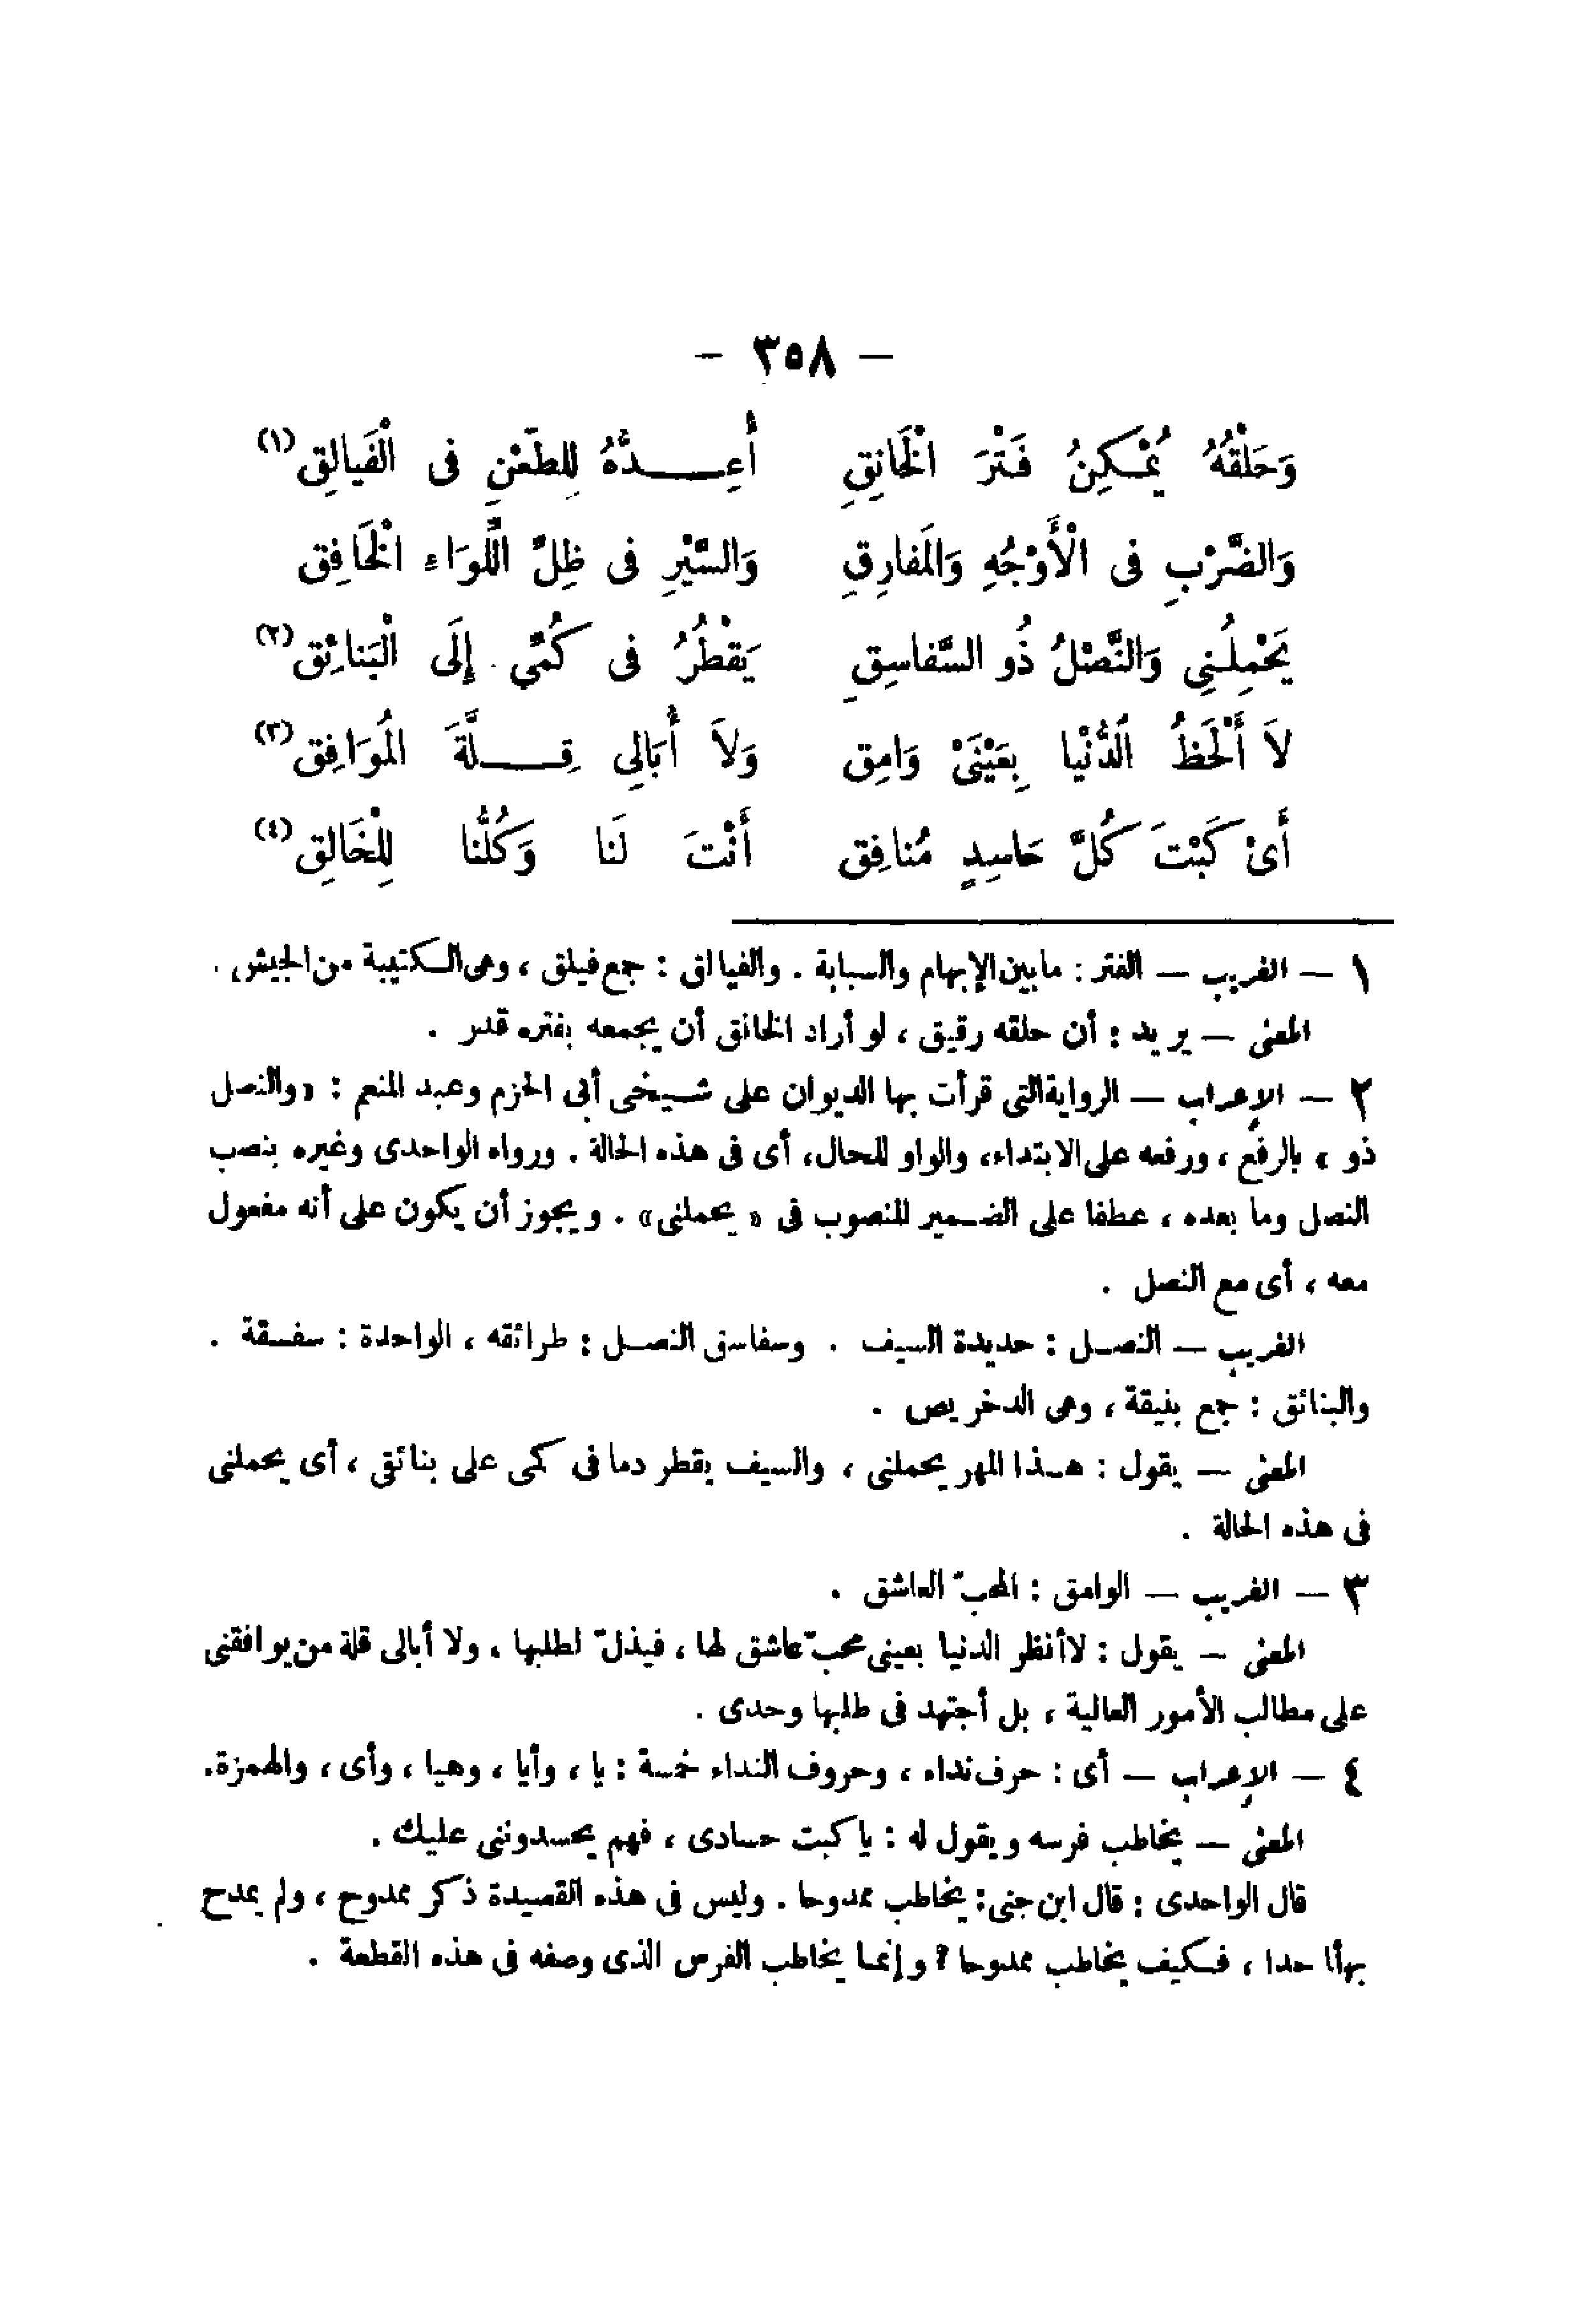 — ٣٥٨ —
وَحَلْقُهُ يُمْكِنُ فَتْرَ الْخَانِقِ أُعِدُّهُ لِلطَّعْنِ فى الْفَيالِقِ (١)
وَالضَّرْبِ فى الْأَوْجُهِ وَالمَفارِقِ وَالسَّيْرِ فى ظِلِّ اللِّوَاءِ الْخَافِقِ
يَحْمِلُنِى وَالنَّصْلُ ذُو السَّفاسِقِ يَقْطُرُ فى كُمِّى إِلَى الْبَنائِقِ (٢)
لاَ أَلْحَظُ الدُّنْيا بِعَيْنَىْ وَامِقِ وَلاَ أُبَالِى قِلَّةَ المُوَافِقِ (٣)
أَىْ كَبْتَ كُلِّ حَاسِدٍ مُنافِقِ أَنْتَ لَنا وَكُلُّنا لِلْخَالِقِ (٤)
١ — الغريب — الفتر : مابين الإبهام والسبابة . والفيالق : جمع فيلق ، وهى الكتيبة من الجيش .
المعنى — يريد : أن حلقه رقيق ، لو أراد الخانق أن يجمعه بفتره قدر .
٢ — الإعراب — الرواية التى قرأت بها الديوان على شيخى أبى الحزم وعبد المنعم : «والنصل
ذو » بالرفع ، ورفعه على الابتداء، والواو للحال، أى فى هذه الحالة . ورواه الواحدى وغيره بنصب
النصل وما بعده ، عطفا على الضمير المنصوب فى « يحملنى» . ويجوز أن يكون على أنه مفعول
معه ، أى مع النصل .
الغريب — النصل : حديدة السيف . وسفاسق النصل : طرائقه ، الواحدة : سفسقة .
والبنائق : جمع بنيقة ، وهى الدخريص .
المعنى — يقول : هذا المهر يحملنى ، والسيف يقطر دما فى كمى على بنائقى ، أى يحملنى
فى هذه الحالة .
٣ — الغريب — الوامق : المحبّ العاشق .
المعنى — يقول : لا أنظر الدنيا بعينى محبّ عاشق لها ، فيذلّ لطلبها ، ولا أبالى قلة من يوافقنى
على مطالب الأمور العالية ، بل أجتهد فى طلبها وحدى .
٤ — الإعراب — أى : حرف نداء ، وحروف النداء خمسة : يا ، وأيا ، وهيا ، وأى ، والهمزة.
المعنى — يخاطب فرسه ويقول له : يا كبت حسادى ، فهم يحسدوننى عليك .
قال الواحدى : قال ابن جنى: يخاطب ممدوحا . وليس فى هذه القصيدة ذكر ممدوح ، ولم يمدح
بها أحدا ، فكيف يخاطب ممدوحا ؟ وإنما يخاطب الفرس الذى وصفه فى هذه القطعة .